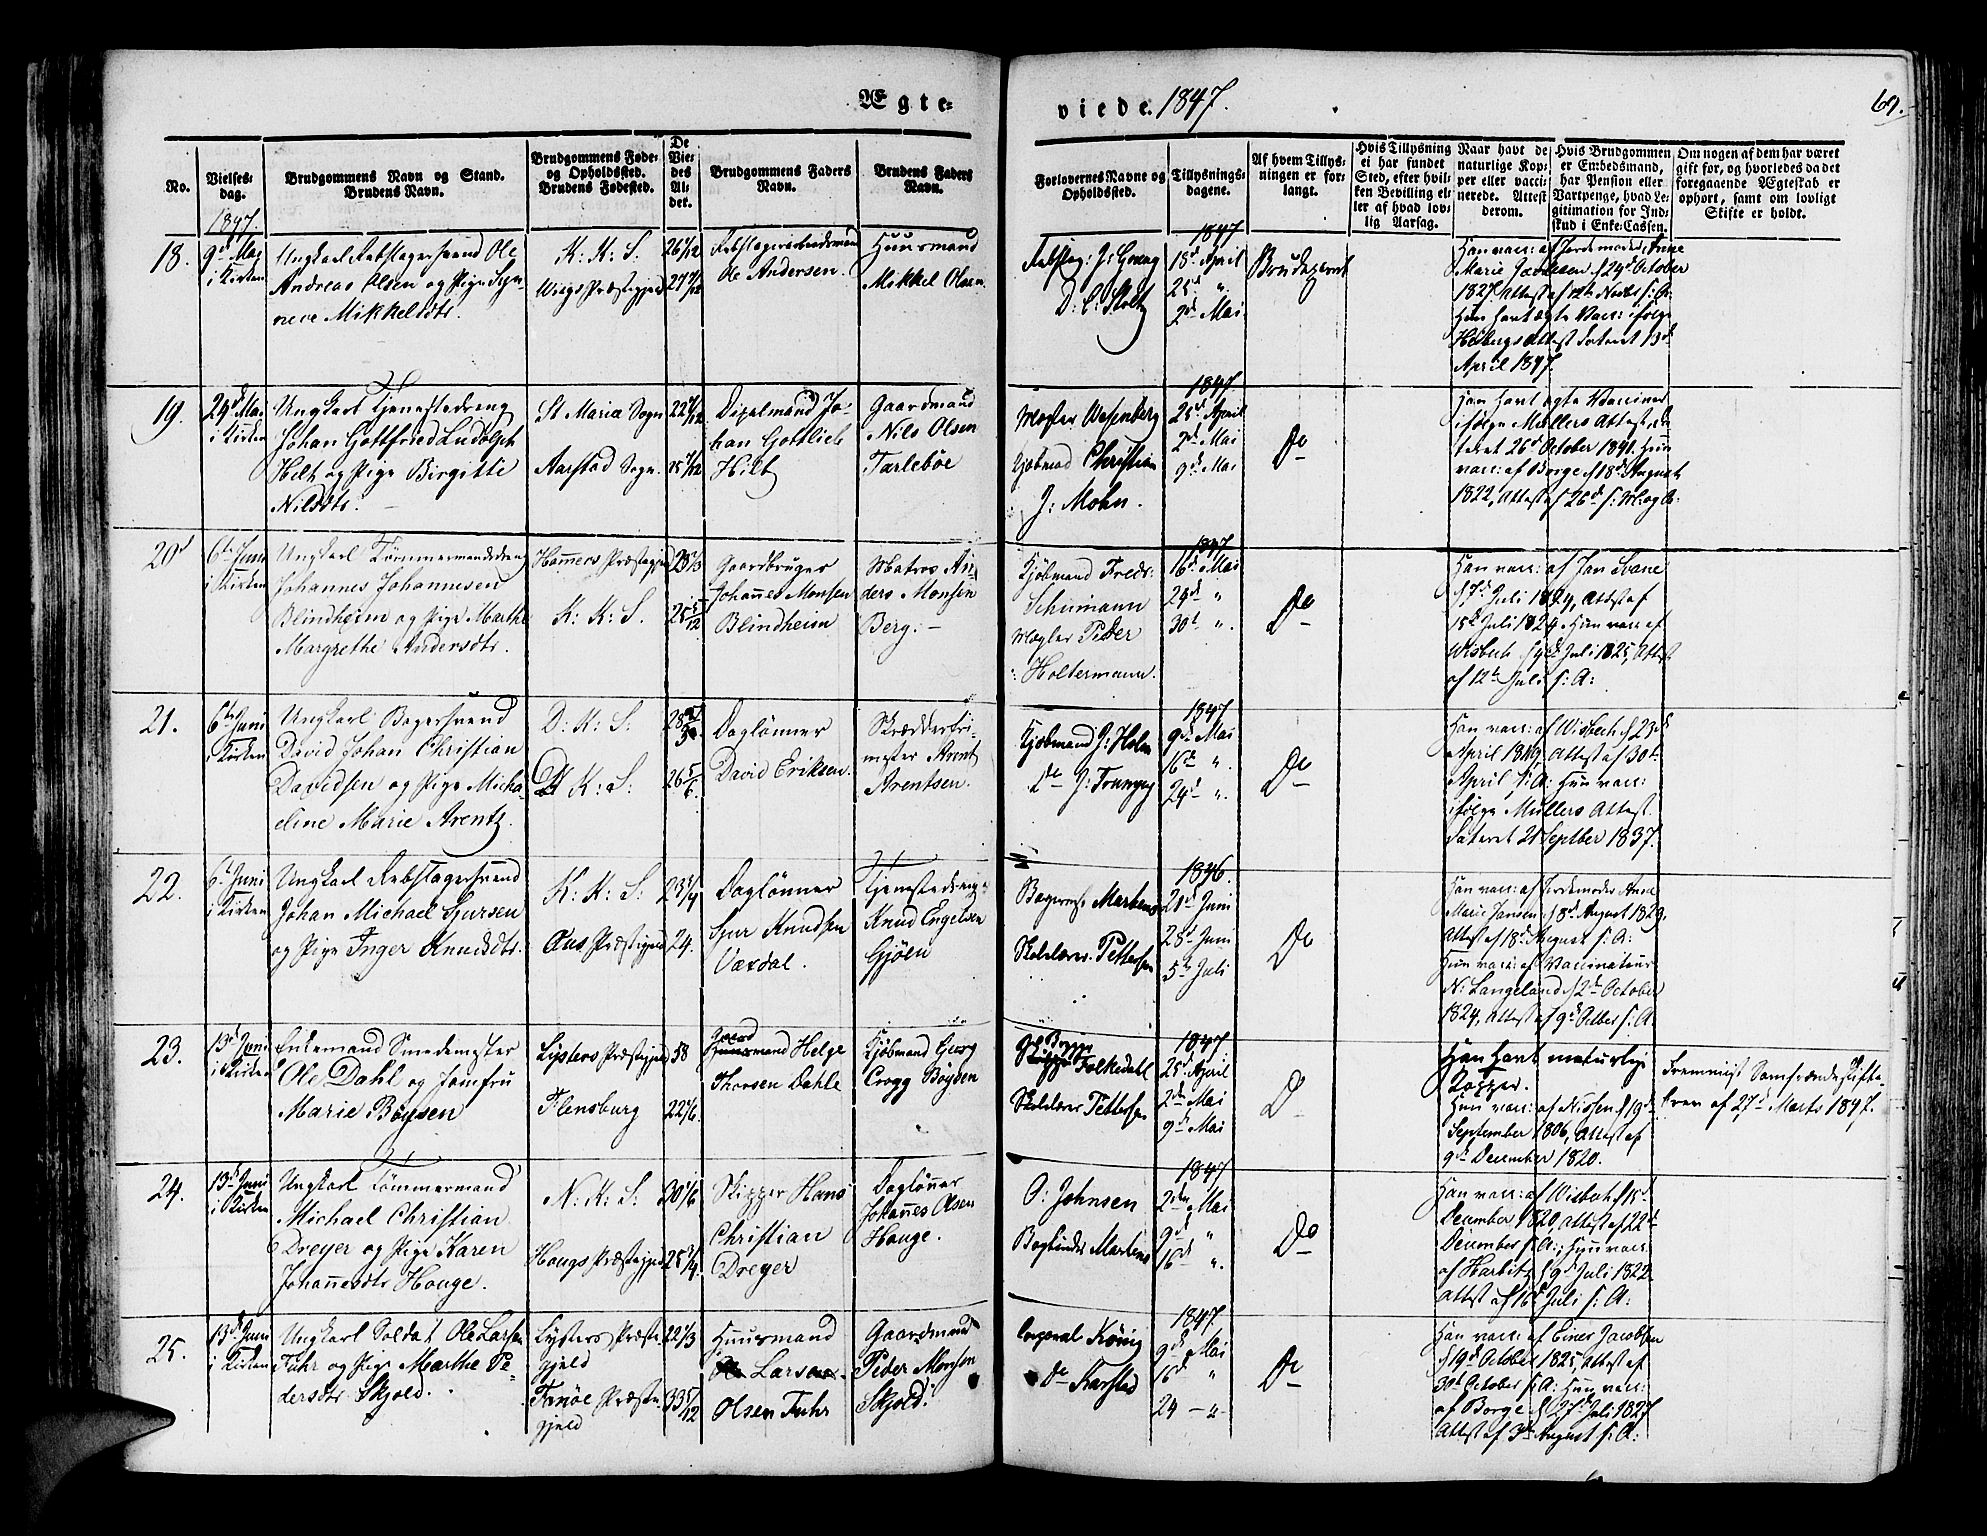 Ægte-
viede. 1847.
69.
No.
Vielses-
dag.
Brudgommens Navn og Stand.
Brudens Navn.
Brudgommens Føde-
og Opholdssted.
Brudens Fødested.
De
Vie-
des
Al-
der.
Brudgommens Faders
Navn.
Brudens Faders
Navn.
Forlovernes Navne og
Opholdssted.
Tillysnings-
dagene.
Af hvem Tillys-
ningen er for-
langt.
Hvis Tillysning
ei har fundet
Sted, efter hvil-
ken Bevilling el-
ler af hvad lov-
lig Aarsag.
Naar havt de
naturlige Kop-
per eller vacci-
nerede. Attest
derom.
Hvis Brudgommen
er Embedsmand,
har Pension eller
Vartpenge, hvad Le-
gitimation for Ind-
skud i Enke-Cassen.
Om nogen af dem har været
gift før, og hvorledes da det
foregaaende Ægteskab er
ophørt, samt om lovligt
Skifte er holdt.
1847.
18.
9de Mai
i Kirken
Ungkarl Rebslagersvend Ole
Andreas Olsen og Pige
Mikkelsdtr.
K: K: S.
Præstegjeld
26
27
Ole Andersen.
Huusmand
Mikkel Olsen
Rebslag: J: Grung
D: C: Stoltz
1847
18de April
25de "
2de Mai
Brudeparret
Han vacc: af Jordemoder Anne
Marie Jacobsen d 29de October
1827, Attest af
Hun havt ægte Vacc: ifølge
Heibergs Attest dateret 13de
April 1847.
19.
24de Mai
i Kirken
Ungkarl Tjenestedreng
Johan Gottfried Ludolph
Hilt og Pige Birgitte
Nilsdtr.
St Mariæ Sogn
Aarstad Sogn.
22
25
Johan Gottlieb
Hilt
Gaardmand
Nils Olsen
Tarlebøe
Mægler Wesenberg
Kjøbmd Christian
J: Mohn.
1847.
25de April
2de Mai
9de Mai
Do
Han havt ægte Vacciner
ifølge Müllers Attest, da-
teret 26de October 1841. Hun
vacc: af Borge d 18de August
1822, Attest af 26de s: M: og A:
20de
6te Juni
i Kirken
Ungkarl Tømmermandsdreng
Johannes Johannesen
Blindheim og Pige Marthe
Margrethe Andersdtr.
Hammers Præstegjeld
K: K: S.
23 1/3
25 5/12
Gaardbruger
Johannes Monsen
Blindheim
Matros An-
ders Monsen
Berg.
Kjøbmand Fredr:
Schumann
Mægler Peder
Holtermann.
1847.
16de Mai
24de "
30te ".
Do
Han vacc: af Jan Svane
d 7de Juli 1824, Attest af
15de Juli 1824. Hun vacc: af
Wisbech d 4de Juli 1825, Attest
af 12te Juli s: A:
21.
6te Juni
i Kirken
Ungkarl Bagersvend
David Johan Christian
Davidsen og Pige Micha-
eline Marie Arentz.
D: K: S.
K: S:
28
26 5/6.
Daglønner
David Eriksen.
Skrædder
mester Arent
Arentsen.
Kjøbmand J: Holm
Do J:
1847
9de Mai
16de ".
24de ".
Do
Han vacc: af Wisbech d 23de
April 1819, Attest af 30te
April s: A: Hun vacc:
ifølge Müllers Attest
dateret 21 Septber 1837.
22.
6te Juni
i Kirken
Ungkarl Rebslagersvend
Johan Michael Sjursen
og Pige Inger Knudsdtr.
K: K: S:
Ous Præstegjeld
23 1/4
24.
Daglønner
Sjur Knudsen
Vaxdal.
Tjenestedreng
Knud Engelsen
Gjøen
Bagermst Martens
Skolelærer Pettersen
1846.
21de Juni
28de Juni
5te Juli
Do
Han vacc: af Jordemoder Anne
Marie Jansen d 8de August 1829.
Attest af 18de August s: A:
Hun vacc: af Vaccinateur
N: Langeland d 2de October
1824, Attest af 9de Octber s: A.
23.
13de Juni
i Kirken
Enkemand Smedemester
Ole Dahl og Jomfru
Marie Boysen
Lysters Præstegjeld
Flensburg
58
22 1/6.
Gaard
Huusmand Helge
Thorsen Dahle
Kjøbmand Georg
Crogg Boysen
Skipper Folkedahl
Skolelærer Pettersen
1847
25de April
2den Mai
9de Mai
Do
Han havt naturlige
Kopper.
Hun vacc: af Nissen d 19de
September 1806, Attest af
9de December 1820.
Fremviist Samfrændeskifte-
brev af 27de Marts 1847.
24.
13de Juni
i Kirken
Ungkarl Tømmermand
Michael Christian
Dreyer og Pige Karen
Johannesdtr Houge.
N: K: S:
Hougs Præstegjeld
30 1/6
25 1/4
Skipper Hans
Christian
Dreyer
Daglønner
Johannes Olsen
Houge.
O: Johnsen
Bogbinder Martens
1847
2den Mai
9de "
16de ".
Do
Han vacc: af Wisbech d 15de
December 1820, Attest af 22de
December s: A:, Hun vacc:
af Harbitz d 9de Juli 1822
Attest af 16de Juli s: A:
25.
13de Juni
i Kirken
Ungkarl Soldat Ole Larsen
Fuhr og Pige Marthe Pe-
dersdtr Skjold.
Lysters Præste-
gjeld
Præste-
gjeld
22 1/3
33 5/12
Huusmand
Lars
Olsen Fuhr
Gaardmand
Peder Monsen
Skjold.
Corporal König
Do Karstad
1847.
9de Mai
16de "
24 — "
Do
Han vacc: af Einer Jacobsen
d 19de October 1825, Attest af
30te October s: A: Hun vacc:
af Borge d 27de Juli 1827
Attest af 3de August s: A: